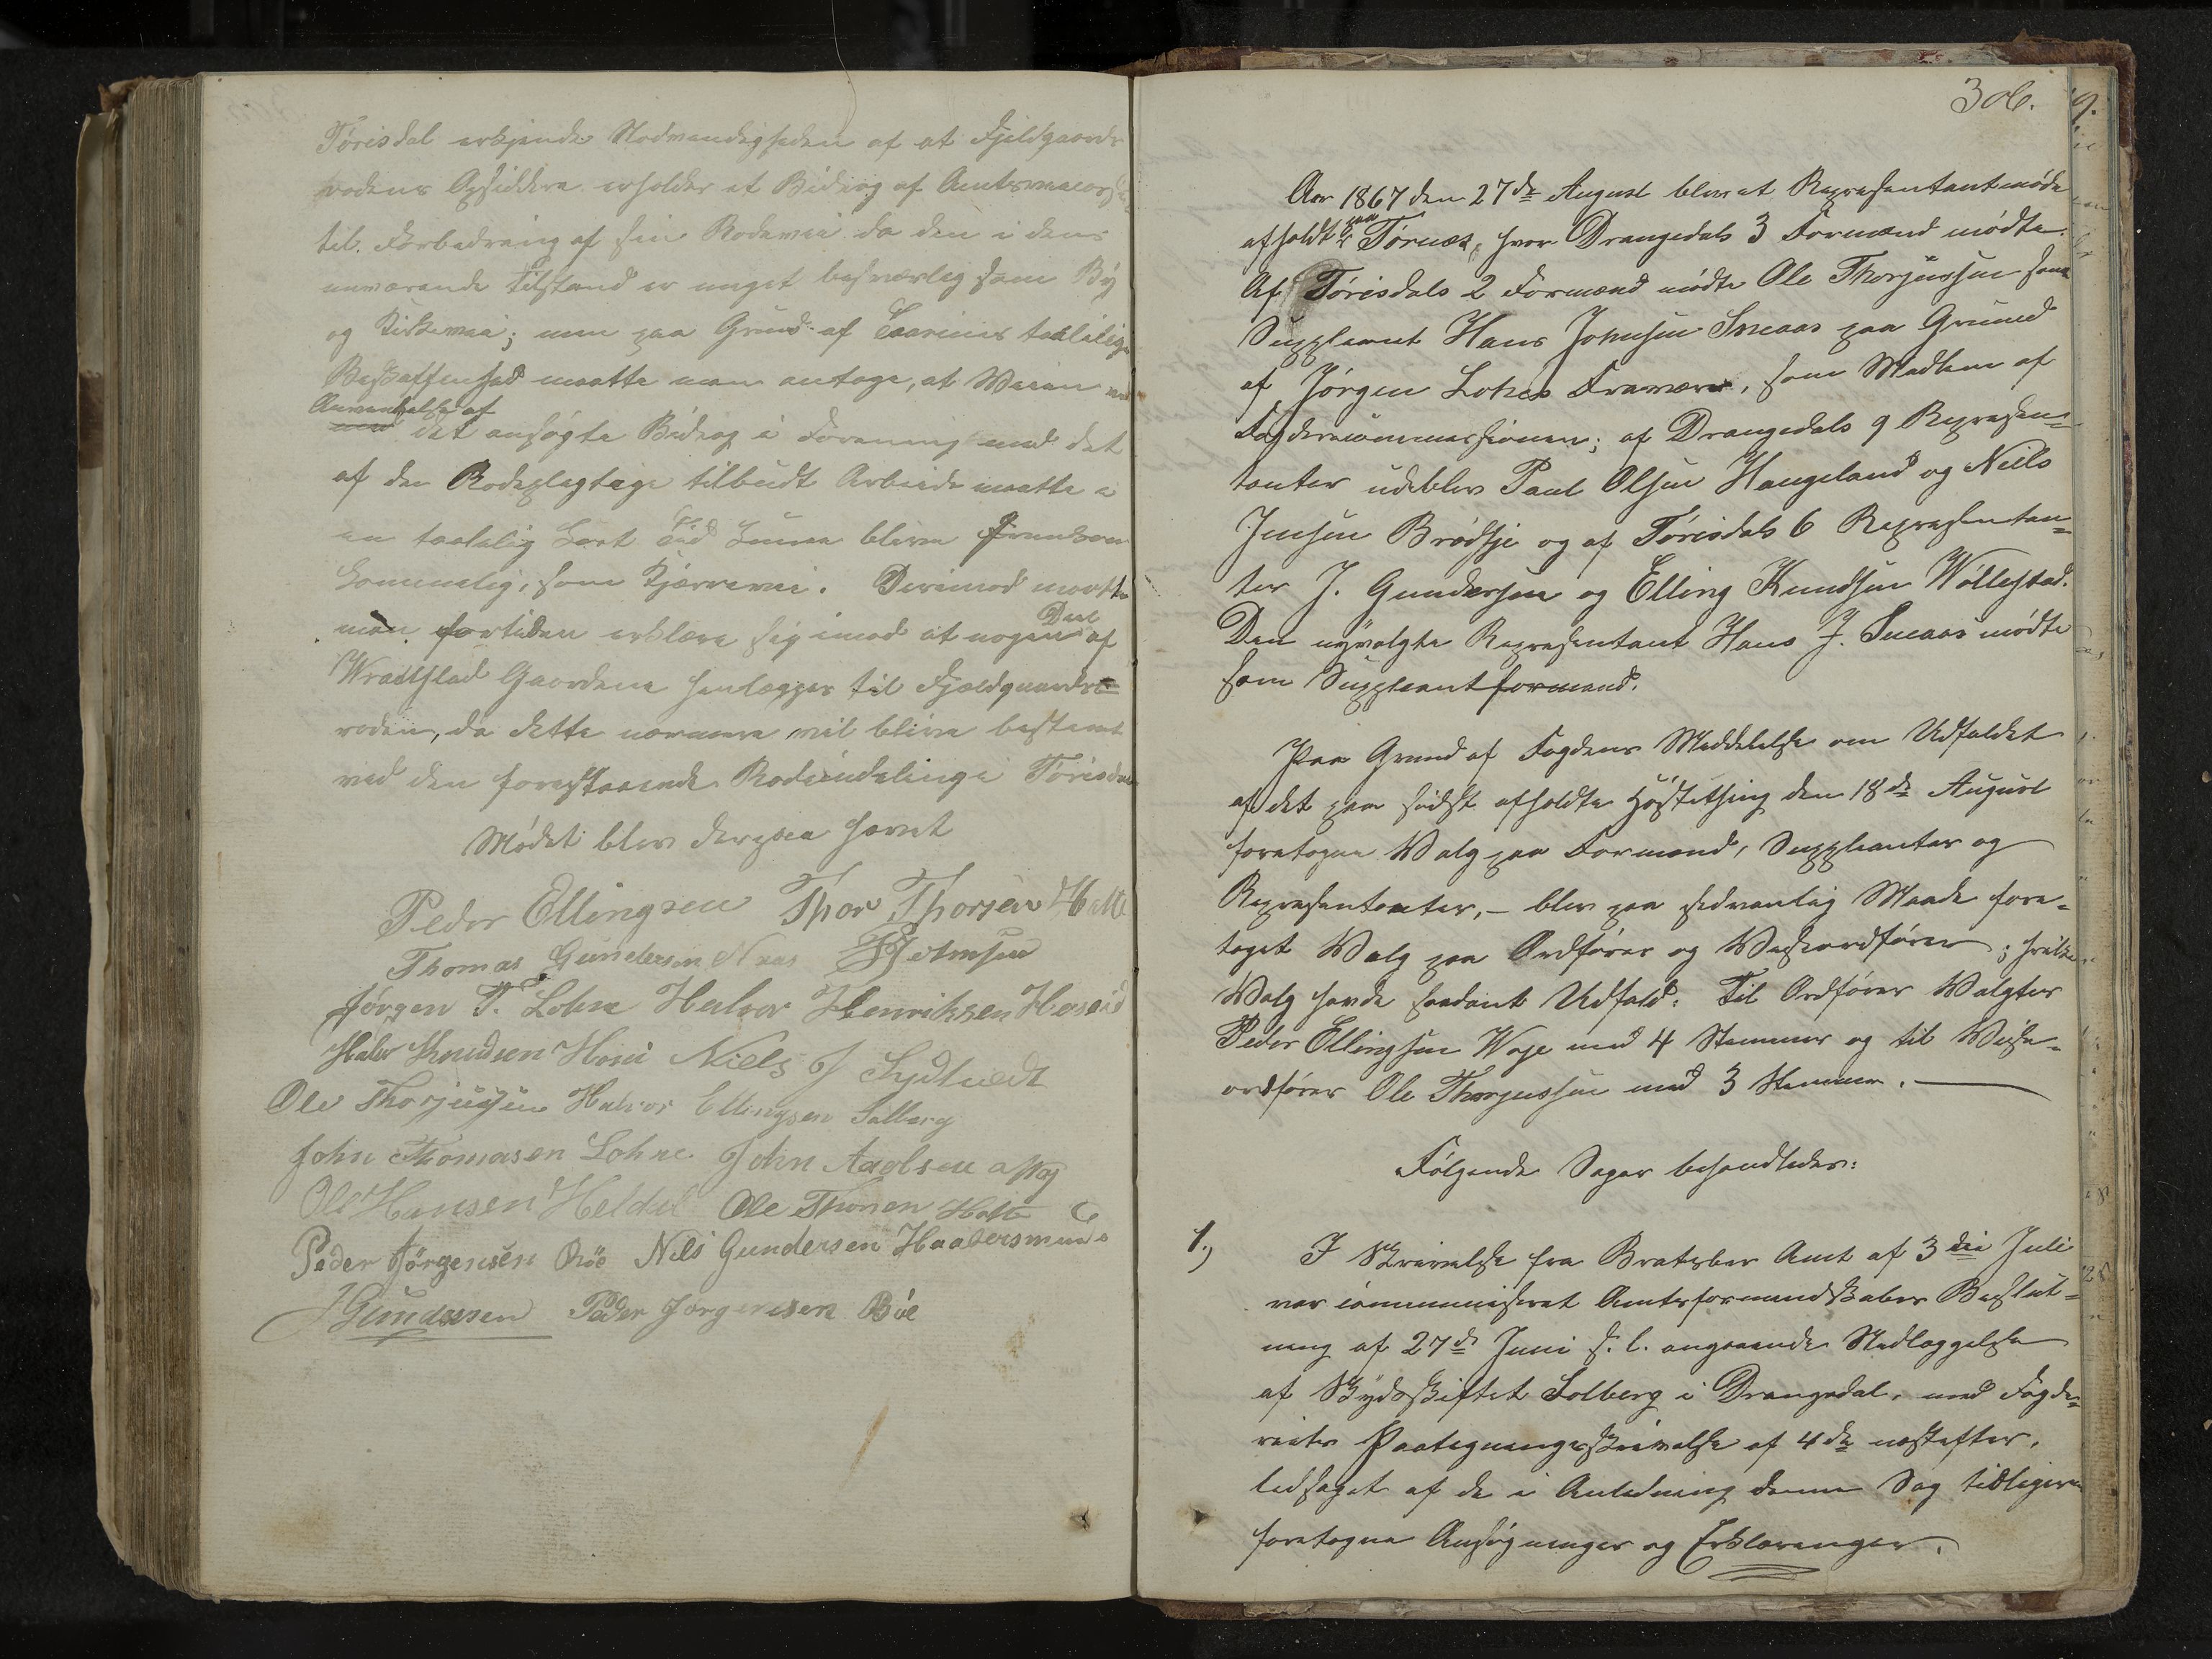 Törisdal erkjende Nödvendigheden af at Fjeldgaards
rodens Opsiddere erholder et Bidrag af Amtsveicassen
til Forbedring af sin Rodevei da den i dens
nuværende Tilstand er meget besværlig som By
og Kirkevei; men paa Grund af Taariens taalelige
Beskaffenhed maatte man antage, at Veien ved
Anvendelse af
det ansøgte Bidrag i Forening med det
af de Rodepligtige tilbudt Arbeide maatte i
en taalelig kort Tid kunne blive fremkom
kommelig, som Kjærrevei. Derimod maatte
man fortiden erklære sig imod at nogen Deel af
Wraalstad Gaardene henlægges til Fjeldgaards-
roden, da dette nærmere vil blive bestemt
ved den forestaaende Rodeinddeling i Törisdal
Mödet blev derpaa hævet
Peder Ellingsen Thor Thorsen Holte
Thomas Gundersen Næs
Jørgen T. Lohne Halvor Henriksen Heseid
Halv Knudsen Niels J Sydtvedt
Ole Thorjussen Halvor Ellingsen Solberg
John Thomasen Lohne John Aadsen
Ole Hansen Heldal Ole Thorsen Holte
Peder Jörgensen Böe Nils Gundersen
J Gundersen Peder Jørgensen Böe
306.
Aar 1867 den 27de August blev et Repræsentantmöde
afholdt paa Törnes, hvor Drangedals 3 Formænd mödte.
Af Törisdals 2 Formænd mödte Ole Thorjussen som
Suppleant Hans Johnsen Sneaas paa Grund
af Jörgen Lohnes Fravær, som Medlem af
af Drangedals 9 Repræsen=
tanter udeblev Paul Olsen Haugeland og Neils
Jensen Brödsje og af Törisdals 6 Repræsentan=
ter J. Gundersen og Elling Knudsen Wöllestad.
Den nyvalgte Repræsentant Hans J. Sneaas mödte
som Suppleant formand.
Paa Grund af Fogdens Meddelelse om Udfaldet
af det paa sidst afholdte Höstething den 18de August
foretagne Valg paa Formænd, Suppleanter og
Repræsentanter, – blev paa sedvanlig Maade fore-
taget Valg paa Ordförer og Viceordförer; hvilke
Valg havde saadant Udfald: Til Ordförer Valgtes
Peder Ellingsen Woje med 4 Stemmer og til Vice-
ordförer Ole Thorjussen med 3 Stemmer.
Fölgende Sager behandledes:
1.) I Skrivelse fra Bratsberg Amt af 3die Juli
var communiseret Amtsformandskabets Beslut=
ning af 27de Juni s. l. angaaende Nedlæggelse
af Skydsskiftet Solberg i Drangedal, med Fogde=
riets Paategningsskrivelse af 4de næstefter,
ledsaget af de i Anledning denne Sag tidligere
foretagne Ansögninger og Erklæringer.